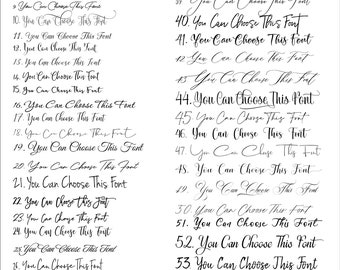 9. You Can Choose This Font
10. You Can Choose This Font
11. You Can Choose This Font
12. You Can Choose This Font
13. You Can Choose This Font
14. You Can Choose This Font
15. You Can Choose This Font
16. You Can Choose This Font
17. You Can Choose This Font
18. You Can Choose This Font
19. You Can Choose This Font
20. You Can Choose This Font
21. You Can Choose This Font
22. You Can Choose This Font
23. You Can Choose This Font
24. You Can Choose This Font
25. You Can Choose This Font
26. You Can Choose This Font
39. You Can Choose This Font
40. You Can Choose This Font
41. You Can Choose This Font
42. You Can Choose This Font
43. You Can Choose This Font
44. You Can Choose This Font
45. You Can Choose This Font
46. You Can Choose This Font
47. You Can Choose This Font
48. You Can Choose This Font
49. You Can Choose This Font
50. You Can Choose This Font
51. You Can Choose This Font
52. You Can Choose This Font
53. You Can Choose This Font